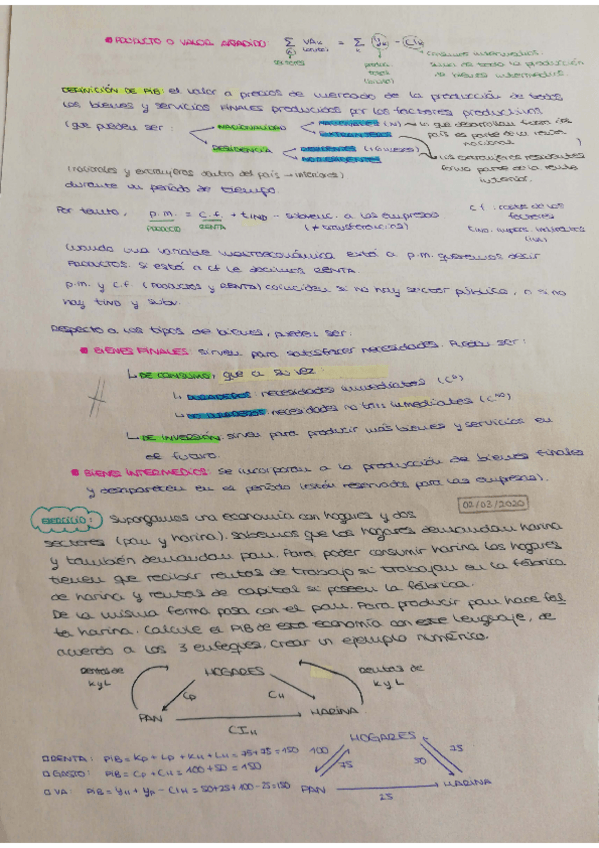 • PRODUCTO O VALOR AÑADIDO: Σ VAk = Σ yk - CIk
sectores
DEFINICIÓN DE PIB: el valor a precios de mercado de la producción de todos
los bienes y servicios FINALES producidos por los factores productivos
(que pueden ser: NACIONALIDAD NACIONALES (N)
EXTRANJEROS país es parte de la renta
nacional)
RESIDENCIA RESIDENTES
NO RESIDENTES los extranjeros residentes
forma parte de la renta
interior.
(nacionales y extranjeros dentro del país → interiores)
durante un período de tiempo.
Por tanto, p.m. = c.f. + tIND - subvenc. a las empresas
PRODUCTO RENTA (≠ transferencias)
c.f.: coste de los
factores
tIND: impos. indirectos
(IVA)
Cuando una variable macroeconómica está a p.m. queremos decir
PRODUCTOS. Si está a cf le decimos RENTA.
p.m. y c.f. (PRODUCTOS y RENTA) coinciden si no hay sector público, o si no
hay tIND y subv.
Respecto a los tipos de bienes, pueden ser:
• BIENES FINALES: sirven para satisfacer necesidades. Pueden ser:
↳ DE CONSUMO, que a su vez:
↳ DURADEROS: necesidades inmediatas (Cᴰ)
↳ NO DURADEROS: necesidades no tan inmediatas (Cᴺᴰ)
↳ DE INVERSIÓN: sirven para producir más bienes y servicios en
el futuro.
• BIENES INTERMEDIOS: se incorporan a la producción de bienes finales
y desaparecen en el período (están reservados para las empresas).
02/03/2020
EJERCICIO: Supongamos una economía con hogares y dos
sectores (pan y harina). Sabemos que los hogares demandan harina
y también demandan pan. Para poder consumir harina los hogares
tienen que recibir rentas de trabajo si trabajan en la fábrica
de harina y rentas de capital si poseen la fábrica.
De la misma forma pasa con el pan. Para producir pan hace fal
ta harina. Calcule el PIB de esta economía con este lenguaje, de
acuerdo a los 3 enfoques. Crear un ejemplo numérico.
Rentas de
K y L
HOGARES
Rentas de
K y L
CP
CH
PAN
HARINA
CIH
□ RENTA: PIB = KP + LP + KH + LH = 75+75 = 150
□ GASTO: PIB = CP + CH = 100 + 50 = 150
□ VA: PIB = YH + YP - CIH = 50+25+100-25 = 150
HOGARES
100
75
50
75
PAN
25
HARINA